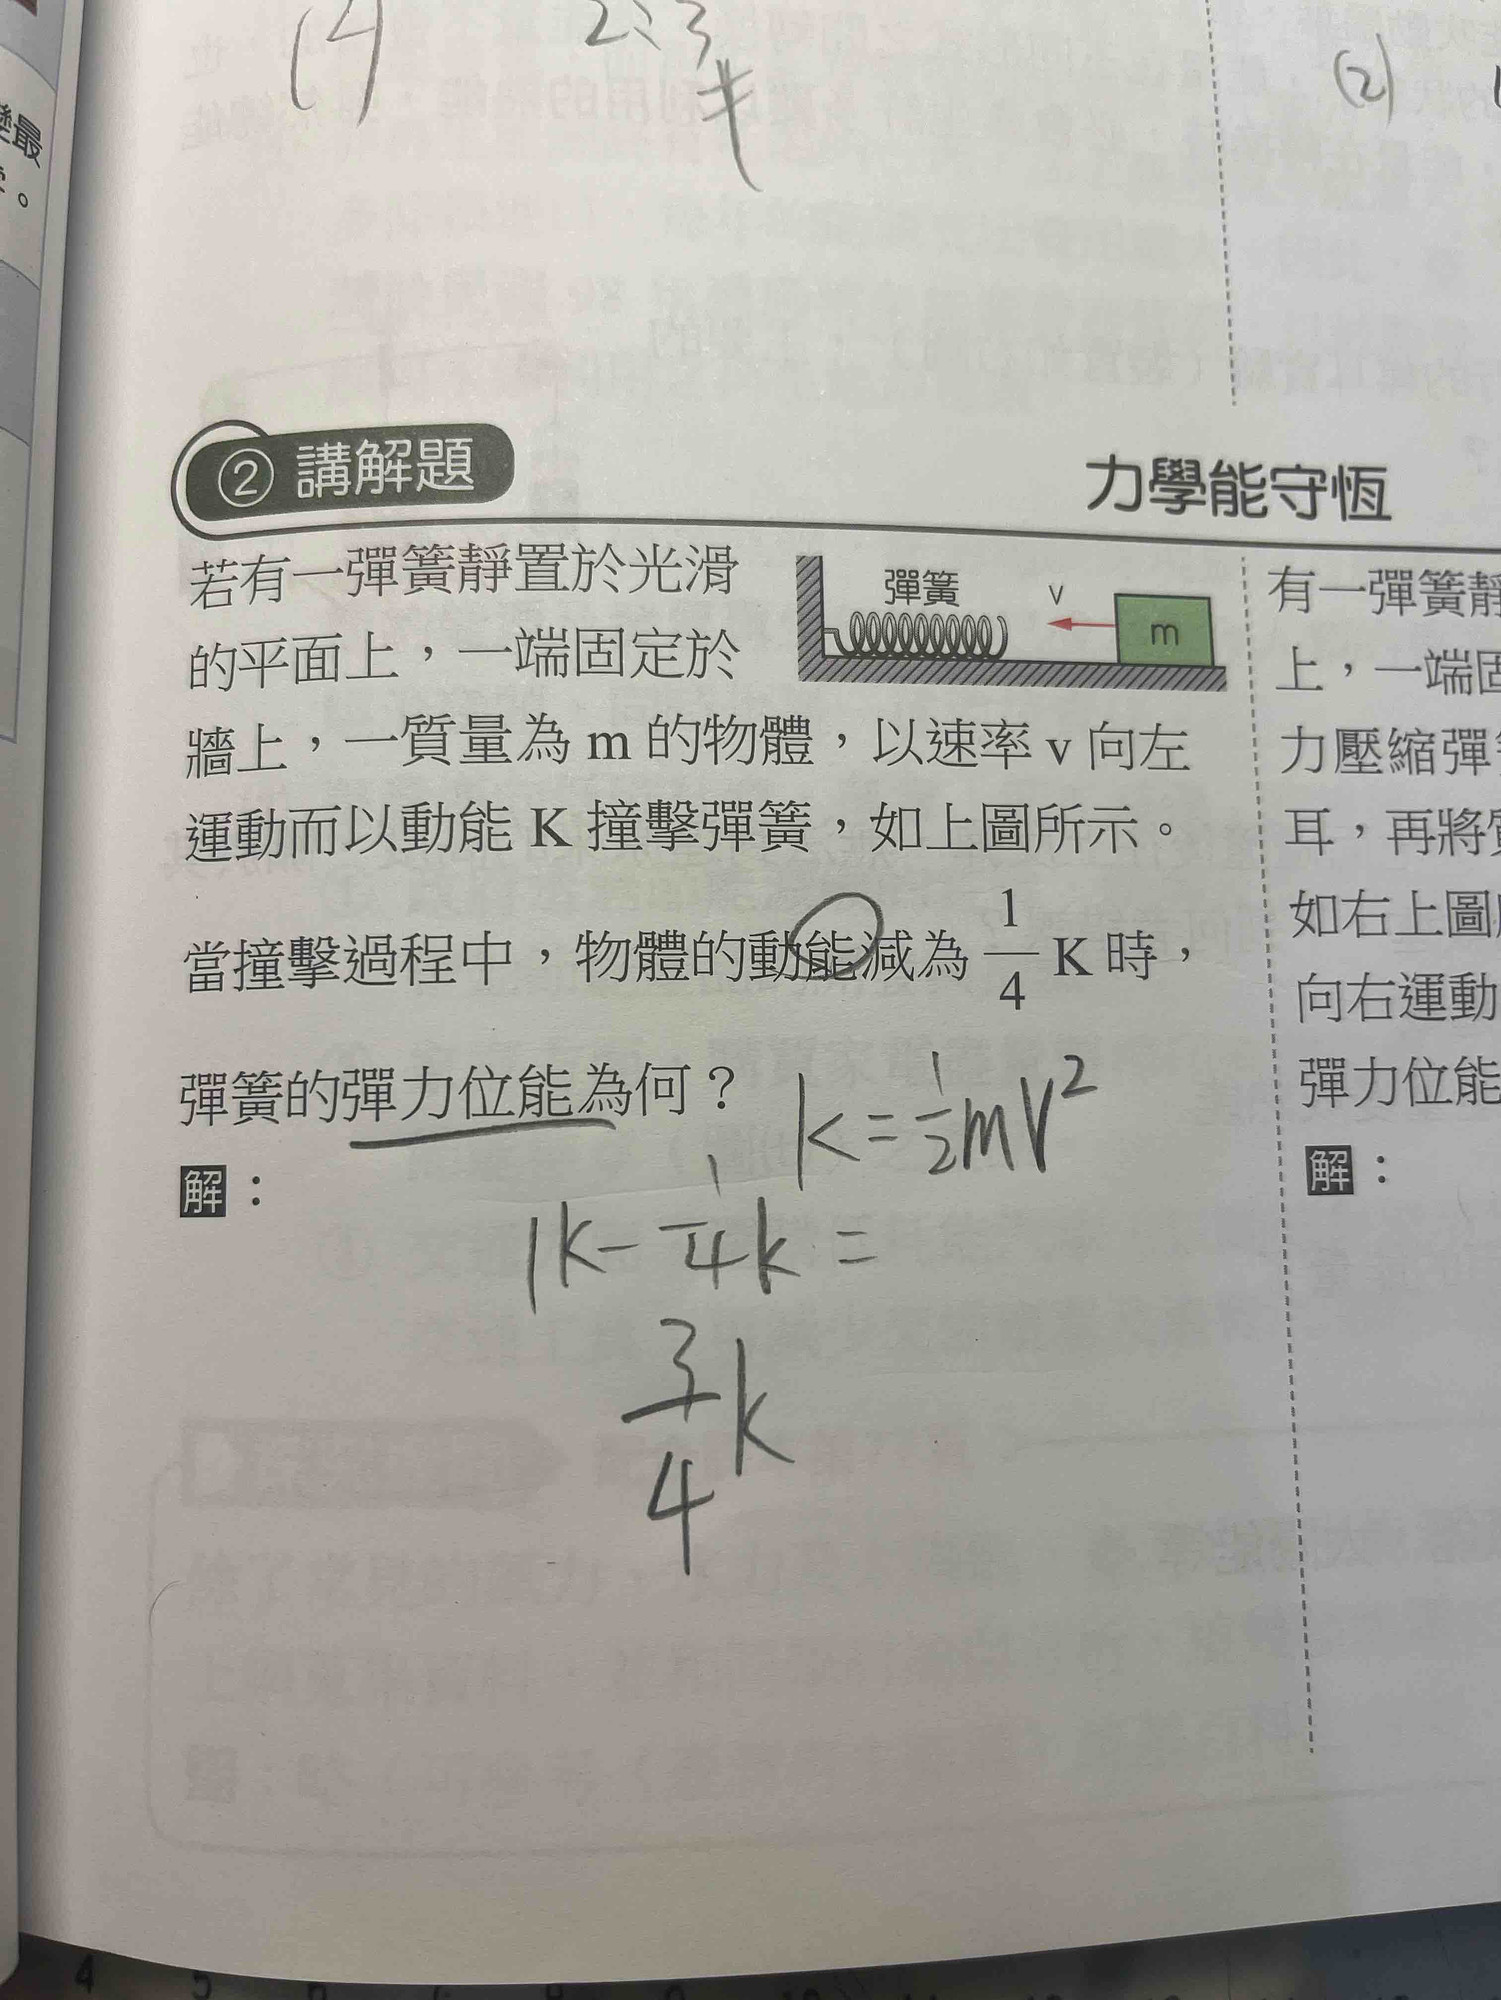 (4
2、3
(2)
變最
。
② 講解題
力學能守恆
若有一彈簧靜置於光滑
的平面上，一端固定於
牆上，一質量為 m 的物體，以速率 v 向左
運動而以動能 K 撞擊彈簧，如上圖所示。
當撞擊過程中，物體的動能減為 1/4 K 時，
彈簧的彈力位能為何？
彈簧
v
m
k=1/2mv²
解：
1k-1/4k=
3/4k
有一彈簧靜
上，一端固
力壓縮彈簧
耳，再將質
如右上圖所
向右運動
彈力位能
解：
4 5 6 7 8 9 10 11 12 13